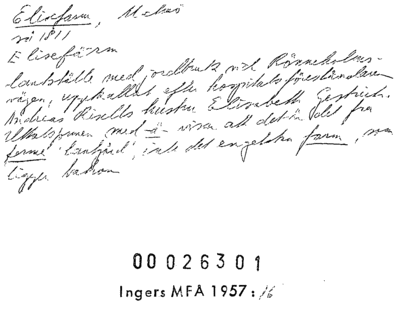 Elisefarm, Malmö
vi 1811
Elisefärm
lantställe med jordbruk vid Rönneholms-
vägen, uppkallat efter hospitalsföreståndaren
Andreas Risells hustru Elisabeth Gestrich.
Uttalsformen med -ä- visar att det är det fra
ferme 'lantgård', inte det engelska farm, som
ligger bakom
00026301
Ingers MFÅ 1957:16